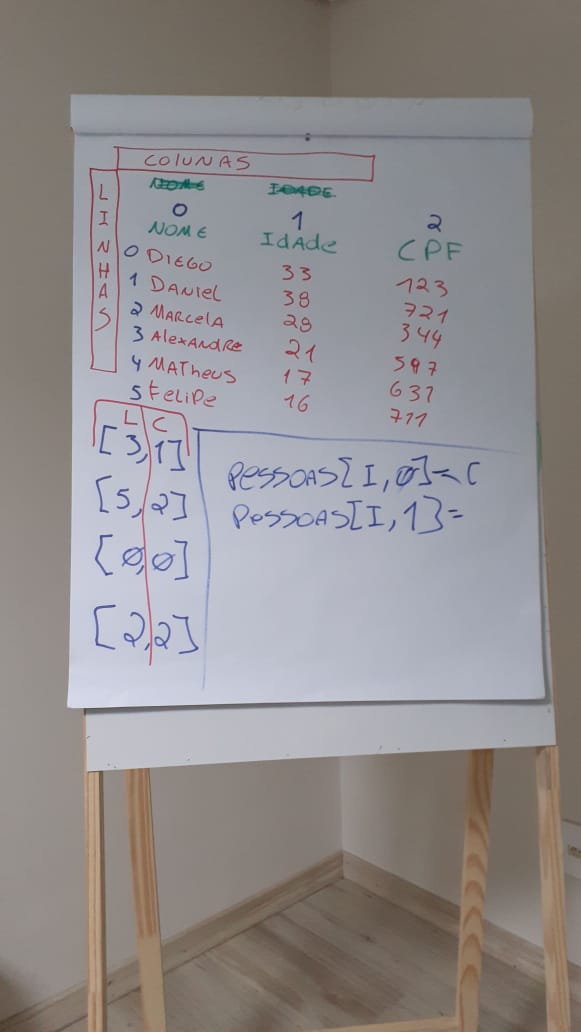 COLUNAS
LINHAS
NOME IDADE
0 1 2
NOME IDADE CPF
0 DIEGO 33 123
1 DANIEL 38 721
2 MARCELA 28 344
3 ALEXANDRE 21 597
4 MATHEUS 17 631
5 FELIPE 16 711
L C
[3,1]
[5,2]
[0,0]
[2,2]
PESSOAS[I,0]=C
PESSOAS[I,1]=